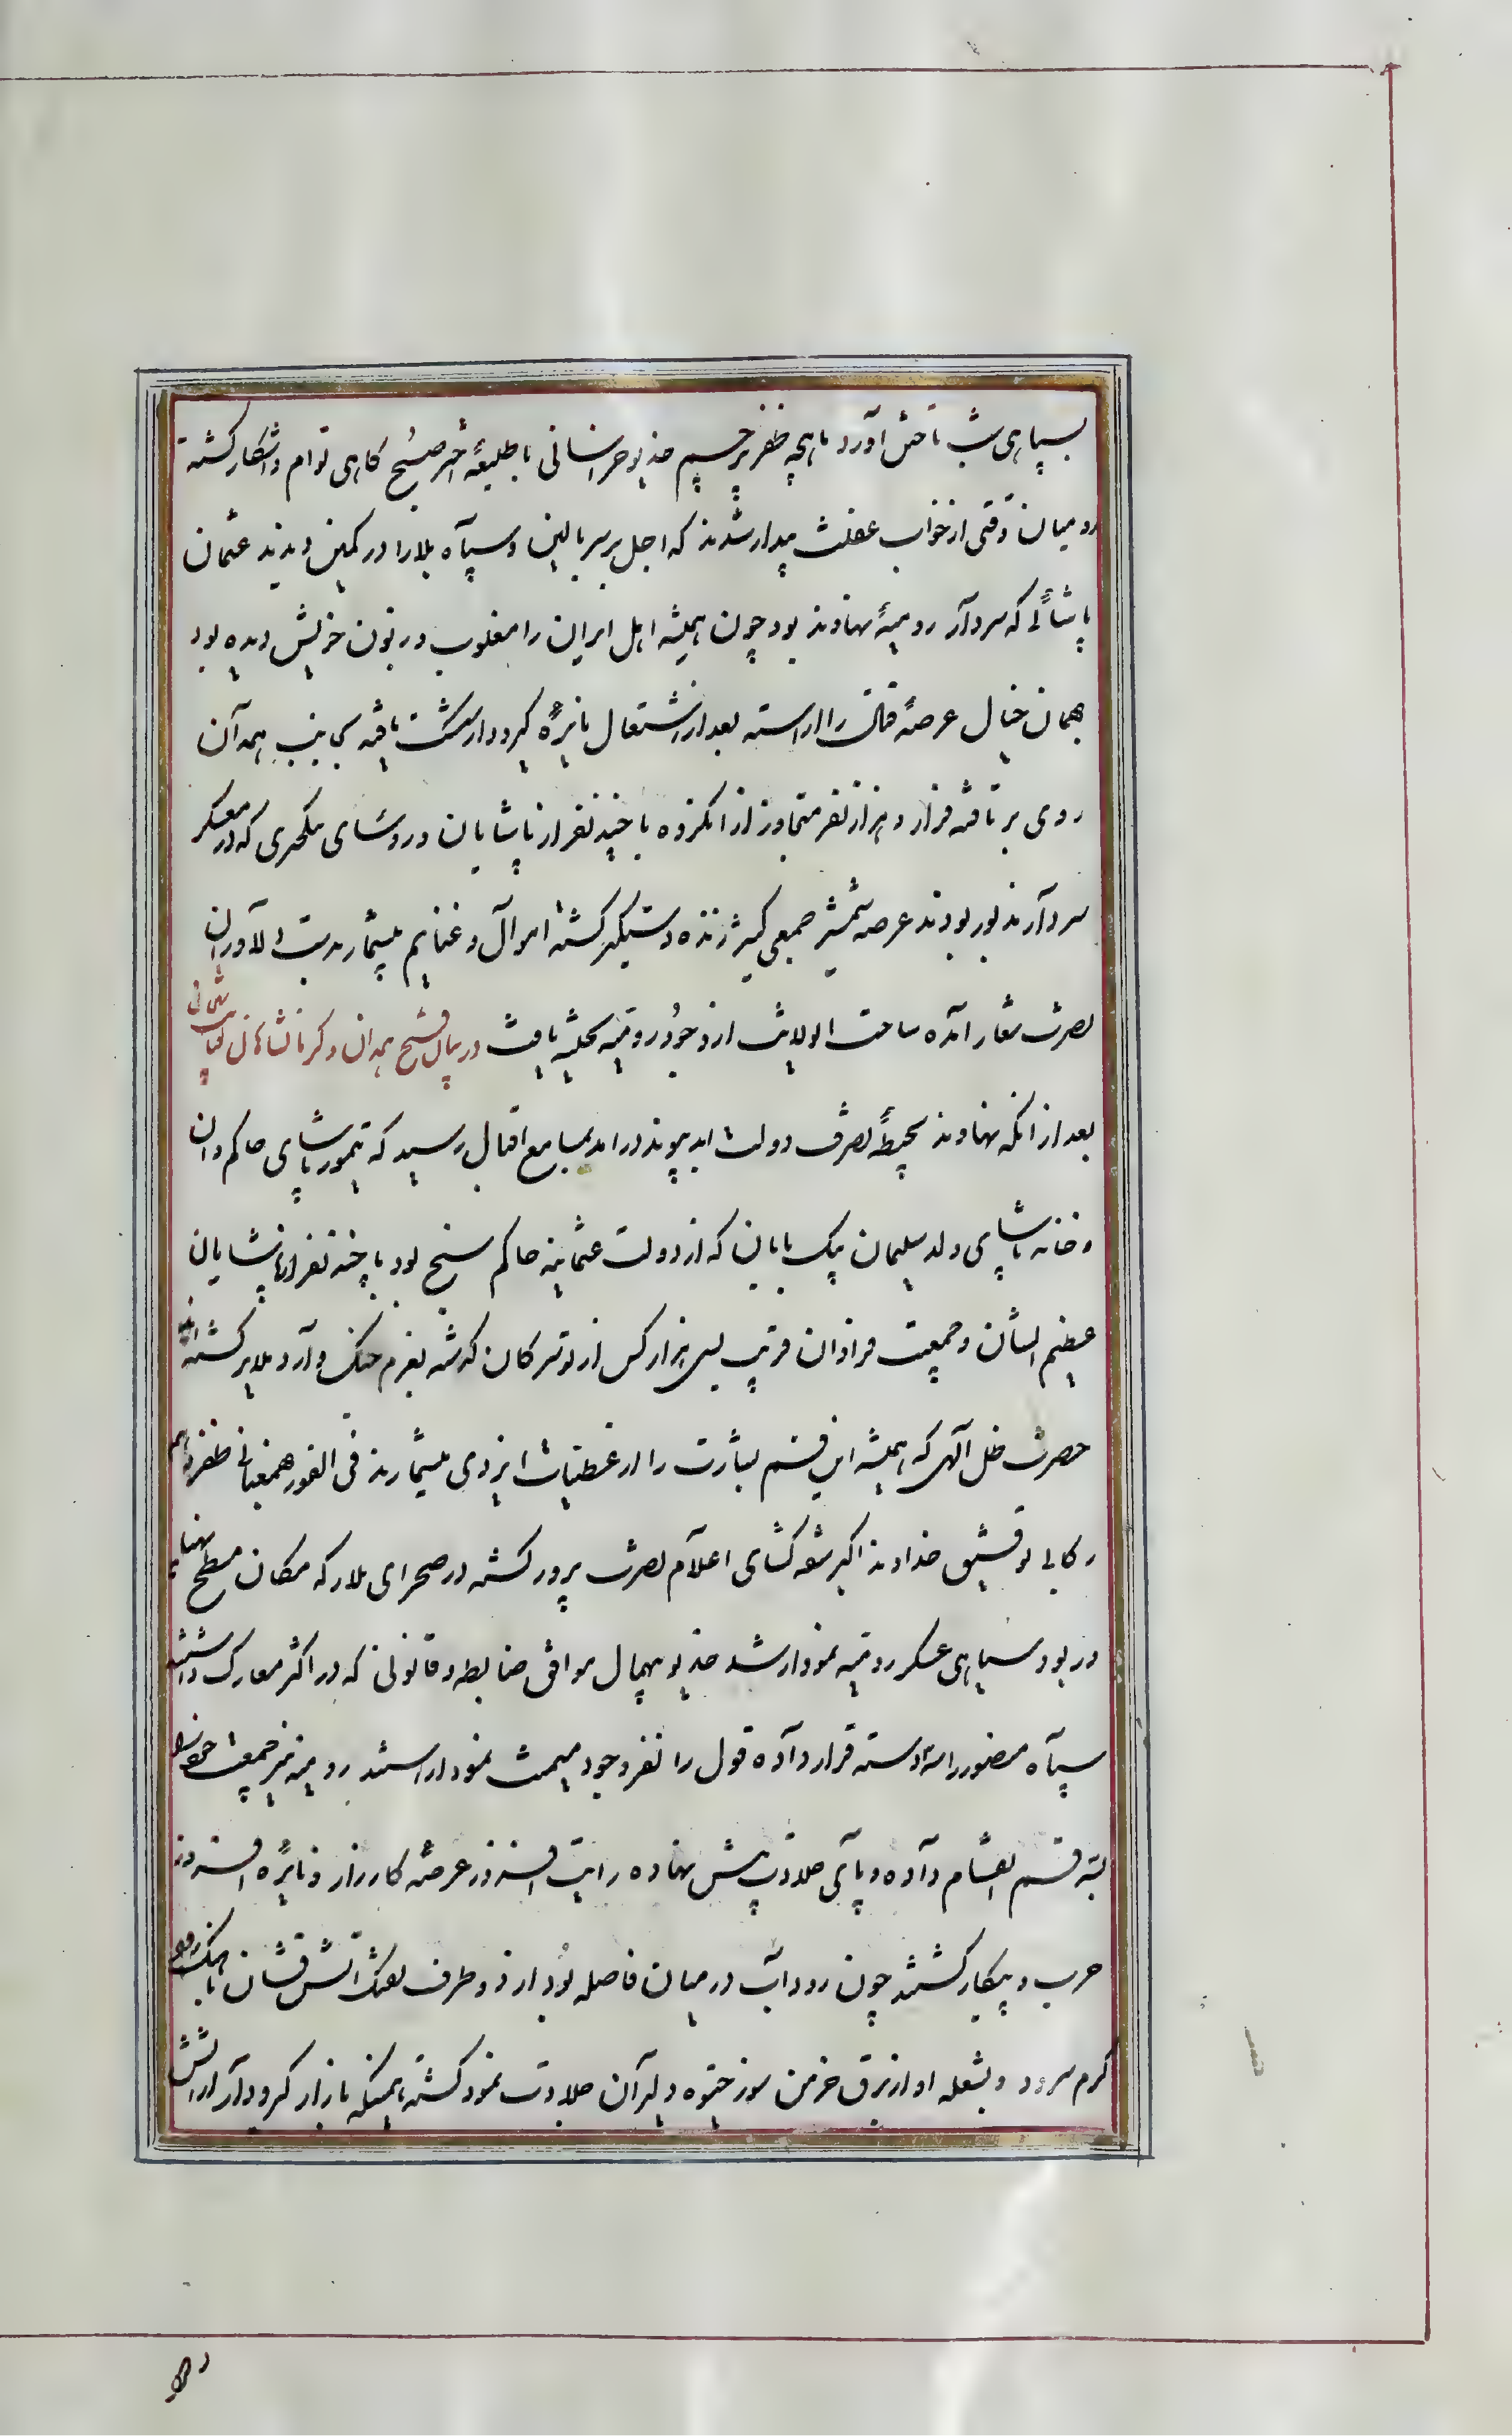 بسپاهی شب تاختن آورد ماهچه ظفر پرچم خدیو خراسانی با طلیعهٔ اختر صبح کاهی توام واشکار کشته
رومیان وقتی از خواب غفلت بیدار شدند که اجل بر سر بالین و سپاه بلا را در کمین دیدند عثمان
پاشائی که سردار رومیهٔ نهاوند بود چون همیشه اهل ایران را مغلوب و زبون خویش دیده بود
بهمان خیال عرصهٔ قتال را اراسته بعد از اشتعال نایرهٔ کیرودار شکست یافته بجانب همدان
روی بر تافته فرار و هزار نفر متجاوز از انکروه با چند نفر از پاشایان و روسای ینکچری که در معسکر
سردار مذبور بودند عرصه شمشیر جمعی کثیر زنده دستیکیر کشته اموال و غنایم بیشمار بدست دلاوران
نصرت شعار آمده ساحت اولایت از وجود رومیه تخلیه یافت در بیان فتح همدان و کرمانشاهان
بعد از انکه نهاوند بحیطهٔ تصرف دولت ابد پیوند درامد بمسامع اقبال رسید که تیمور پاشای حاکم وان
و خانه پاشای ولد سلیمان بیک بابان که از دولت عثمانیه حاکم سنج بود با چند نفر از پاشایان
عظیم الشان و جمعیت فراوان قریب سی هزار کس از توسرکان کذشته بعزم جنک وارد ملایر کشته اند
حضرت ظل آلهی که همیشه این قسم بشارت را از عطیات ایزدی میشمارند فی الفور همعنانی ظفر و هم
رکابی توفیق خداوند اکبر شقه کشای اعلام نصرت پرور کشته در صحرای ملایر که مکان مسطح
در بود سپاهی عسکر رومیه نمودار شد خدیو بیهمال موافق ضابطه و قانونی که در اکثر معارک داشتند
سپاه منصور را سه دسته قرار داده قول را بفر وجود میمنت نمود اراستند رومیه نیز جمعیت خود را
بته قسم انقسام داده و پای جلادت پیش نهاده رایت افروز عرصهٔ کارزار و نایره افروز
حرب و پیکار کشتند چون رود آب در میان فاصله بود از دو طرف تفنک آتش فشان باهنک
کرم سرود و بشعله اواز برق خرمن سوز دلیران جلادت نمود کشته هنکامه بازار کیرودار ارایش